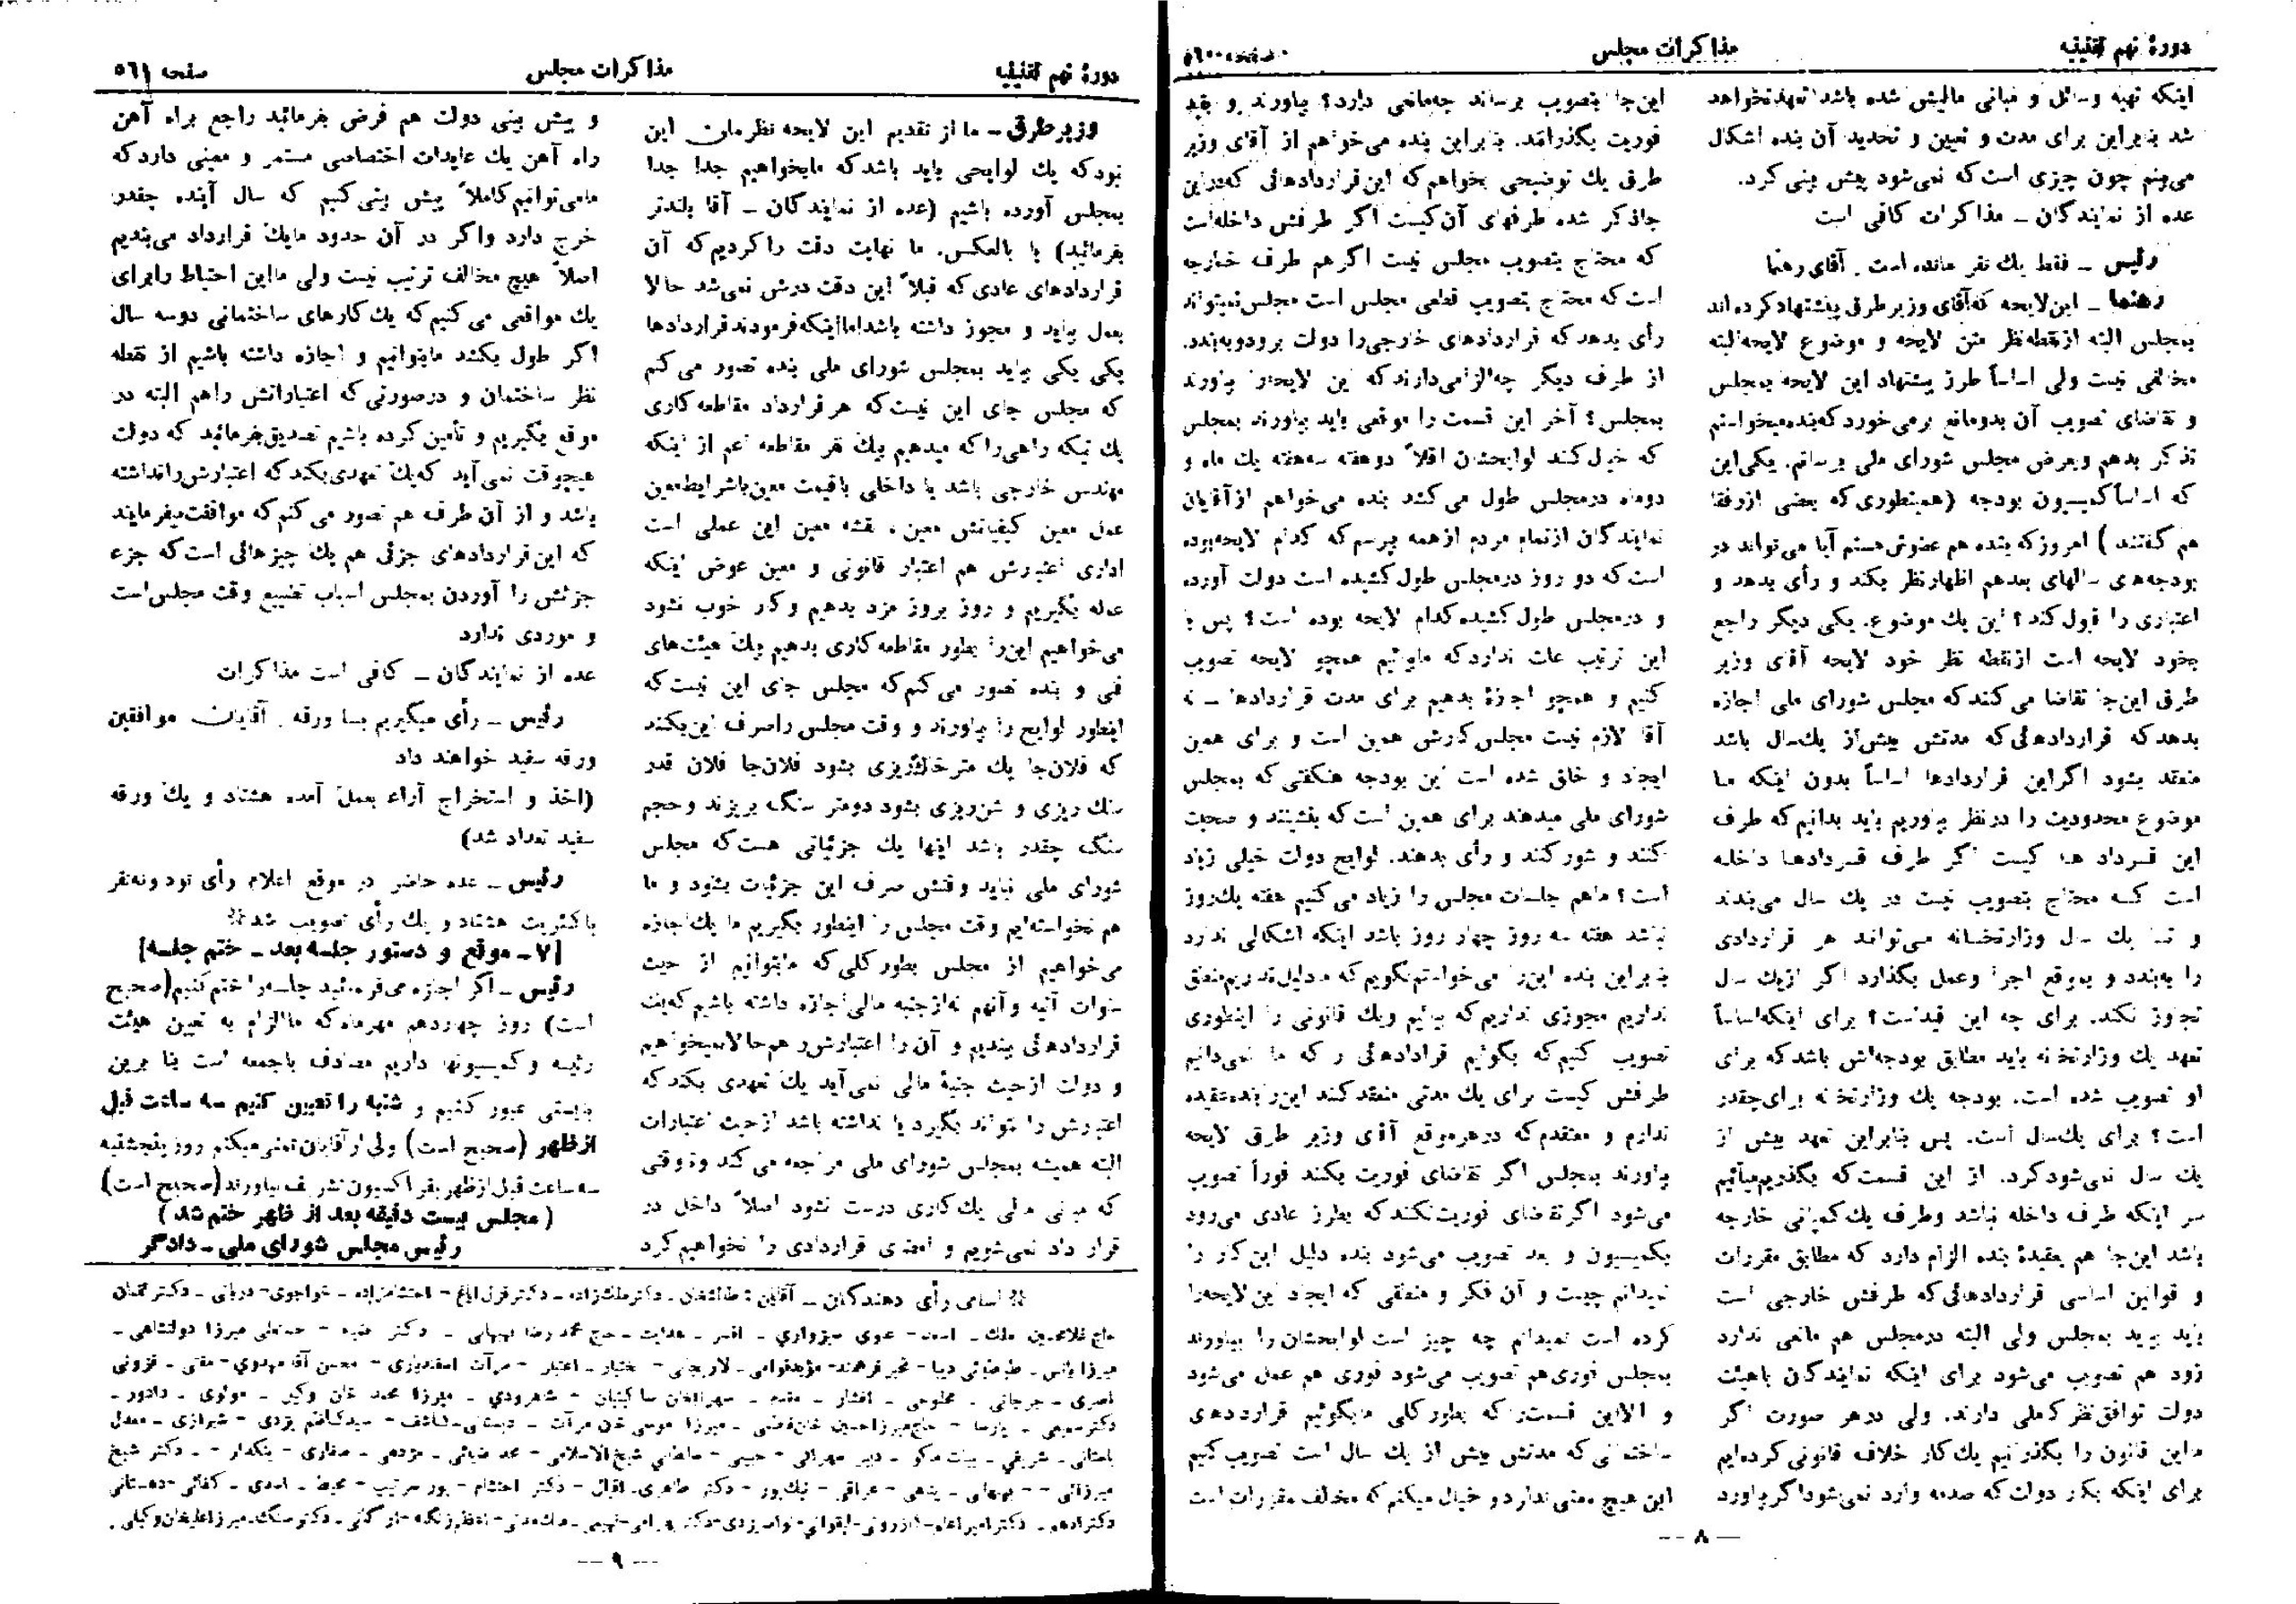 دورهٔ نهم تقنینیه
مذاکرات مجلس
صفحه ٥٦٠
اینکه تهیه وسائل و مبانی مالیش شده باشد تعهد نخواهد
شد بنابراین برای مدت و تعیین و تحدید آن بنده اشکال
می‌بینم چون چیزی است که نمی‌شود پیش بینی کرد.
عده از نمایندگان ـ مذاکرات کافی است
رئیس ـ فقط یك نفر مانده است. آقای رهنما
رهنما ـ این لایحه که آقای وزیر طرق پیشنهاد کرده‌اند
بمجلس البته از نقطه نظر متن لایحه و موضوع لایحه البته
مخالفی نیست ولی اساساً طرز پیشنهاد این لایحه بمجلس
و تقاضای تصویب آن بدو مانع برمی‌خورد که بنده میخواستم
تذکر بدهم و بعرض مجلس شورای ملی برسانم. یکی این
که اساساً کمیسیون بودجه (همینطوری که بعضی از رفقا
هم گفتند) امروز که بنده هم عضوش هستم آیا می‌تواند در
بودجه‌های سالهای بعد هم اظهار نظر بکند و رأی بدهد و
اعتباری را قبول کند؟ این یك موضوع. یکی دیگر راجع
بخود لایحه است از نقطه نظر خود لایحه آقای وزیر
طرق این‌جا تقاضا می‌کنند که مجلس شورای ملی اجازه
بدهد که قراردادهائی که مدتش بیش از یك‌سال باشد
منعقد بشود اگر این قراردادها اساساً بدون اینکه ما
موضوع محدودیت را در نظر بیاوریم باید بدانیم که طرف
این قرارداد ها کیست اگر طرف قراردادها داخله
است که محتاج بتصویب نیست در یك سال می‌بندند
و تا یك سال وزارتخانه می‌تواند هر قراردادی
را به‌بندد و بموقع اجرا و عمل بگذارد اگر از یك سال
تجاوز نکند. برای چه این قید است؟ برای اینکه اساساً
تعهد یك وزارتخانه باید مطابق بودجه‌اش باشد که برای
او تصویب شده است. بودجه یك وزارتخانه برای چقدر
است؟ برای یك‌سال است. پس بنابراین تعهد بیش از
یك سال نمی‌شود کرد. از این قسمت که بگذریم میآئیم
سر اینکه طرف داخله نباشد و طرف یك کمپانی خارجه
باشد این‌جا هم بعقیدهٔ بنده الزام دارد که مطابق مقررات
و قوانین اساسی قراردادهائی که طرفش خارجی است
باید بیاید بمجلس ولی البته در مجلس هم مانعی ندارد
زود هم تصویب می‌شود برای اینکه نمایندگان با هیئت
دولت توافق نظر کاملی دارند. ولی در هر صورت اگر
ما این قانون را بگذرانیم یك کار خلاف قانونی کرده‌ایم
برای اینکه بکار دولت که صدمه وارد نمی‌شود اگر بیاورد
این‌جا بتصویب برساند چه مانعی دارد؟ بیاورند و بقید
فوریت بگذرانند. بنابراین بنده می‌خواهم از آقای وزیر
طرق یك توضیحی بخواهم که این قراردادهائی که در این
جا ذکر شده طرفهای آن کیست اگر طرفش داخله است
که محتاج بتصویب مجلس نیست اگر هم طرف خارجه
است که محتاج بتصویب قطعی مجلس است مجلس نمیتواند
رأی بدهد که قراردادهای خارجی را دولت برود و به‌بندد.
از طرف دیگر چه الزامی دارند که این لایحه‌را بیاورند
بمجلس؟ آخر این قسمت را موقعی باید بیاورند بمجلس
که خیال کنند لوایحشان اقلاً دو هفته سه هفته یك ماه و
دو ماه در مجلس طول می‌کشد بنده می‌خواهم از آقایان
نمایندگان از تمام مردم از همه بپرسم که کدام لایحه بوده
است که دو روز در مجلس طول کشیده است دولت آورده
و در مجلس طول کشیده کدام لایحه بوده است؟ پس با
این ترتیب علت ندارد که ما بیائیم همچو لایحه تصویب
کنیم و همچو اجازهٔ بدهیم برای مدت قراردادها ـ نه
آقا لازم نیست مجلس کارش همین است و برای همین
ایجاد و خلق شده است این بودجه هنگفتی که بمجلس
شورای ملی میدهند برای همین است که بنشینند و صحبت
کنند و شور کنند و رأی بدهند. لوایح دولت خیلی زیاد
است؟ ما هم جلسات مجلس را زیاد می‌کنیم هفته یك‌روز
نباشد هفته سه روز چهار روز باشد اینکه اشکالی ندارد
بنابراین بنده این‌را می‌خواستم بگویم که ما دلیل نداریم منطق
نداریم مجوزی نداریم که بیائیم و یك قانونی را اینطوری
تصویب کنیم که بگوئیم قراردادهائی را که ما نمی‌دانیم
طرفش کیست برای یك مدتی منعقد کنند این‌را بنده عقیده
ندارم و معتقدم که در هر موقع آقای وزیر طرق لایحه
بیاورند بمجلس اگر تقاضای فوریت بکنند فوراً تصویب
می‌شود اگر تقاضای فوریت نکنند که بطرز عادی می‌رود
بکمیسیون و بعد تصویب می‌شود بنده دلیل این‌کار را
نمیدانم چیست و آن فکر و منطقی که ایجاد این لایحه‌را
کرده است نمیدانم چه چیز است لوایحشان را بیاورند
بمجلس فوری هم تصویب می‌شود فوری هم عمل می‌شود
و الا این قسمت‌را که بطور کلی ما بگوئیم قراردادهای
ساختمانی که مدتش بیش از یك سال است تصویب کنیم
این هیچ معنی ندارد و خیال میکنم که مخالف مقررات است
— ٨ —
دورهٔ نهم تقنینیه
مذاکرات مجلس
صفحه ٥٦١
وزیر طرق ـ ما از تقدیم این لایحه نظرمان این
بود که یك لوایحی باید باشد که ما بخواهیم جدا جدا
بمجلس آورده باشیم (عده از نمایندگان ـ آقا بلندتر
بفرمائید) یا بالعکس. ما نهایت دقت را کردیم که آن
قراردادهای عادی که قبلاً این دقت درش نمی‌شد حالا
بعمل بیاید و مجوز داشته باشد اما اینکه فرمودند قراردادها
یکی یکی بیاید بمجلس شورای ملی بنده تصور می‌کنم
که مجلس جای این نیست که هر قرارداد مقاطعه کاری
یك تیکه راهی را که میدهیم بیك نفر مقاطعه اعم از اینکه
مهندس خارجی باشد یا داخلی با قیمت معین با شرایط معین
عمل معین کیفیاتش معین، نقشه معین این عملی است
اداری اعتبارش هم اعتبار قانونی و معین عوض اینکه
عمله بگیریم و روز بروز مزد بدهیم و کار خوب نشود
می‌خواهیم این‌را بطور مقاطعه کاری بدهیم بیك هیئت‌های
فنی و بنده تصور می‌کنم که مجلس جای این نیست که
اینطور لوایح را بیاورند و وقت مجلس را صرف این بکنند
که فلان‌جا یك متر خاکریزی بشود فلان‌جا فلان قدر
سنك ریزی و شن‌ریزی بشود دو متر سنگ بریزند و حجم
سنگ چقدر باشد اینها یك جزئیاتی هست که مجلس
شورای ملی نباید وقتش صرف این جزئیات بشود و ما
هم نخواسته‌ایم وقت مجلس را اینطور بگیریم ما یك اجازه
می‌خواهیم از مجلس بطور کلی که ما بتوانیم از حیث
سنوات آتیه و آنهم نه از جنبه مالی اجازه داشته باشیم که یك
قراردادهائی ببندیم و آن را اعتبارش را هم حالا نمیخواهیم
و دولت از حیث جنبهٔ مالی نمی‌آید یك تعهدی بکند که
اعتبارش را نتواند بگیرد یا نداشته باشد از حیث اعتبارات
البته همیشه بمجلس شورای ملی مراجعه می‌کند و تا وقتی
که مبانی مالی یك کاری درست نشود اصلاً داخل در
قرار داد نمی‌شویم و امضای قراردادی را نخواهیم کرد
و پیش بینی دولت هم فرض بفرمائید راجع براه آهن
راه آهن یك عایدات اختصاصی مستمر و معینی دارد که
ما می‌توانیم کاملاً پیش بینی کنیم که سال آینده چقدر
خرج دارد و اگر در آن حدود ما یك قرارداد می‌بندیم
اصلاً هیچ مخالف ترتیب نیست ولی ما این احتیاط را برای
یك مواقعی می‌کنیم که یك کارهای ساختمانی دو سه سال
اگر طول بکشد ما بتوانیم و اجازه داشته باشیم از نقطه
نظر ساختمان و در صورتی که اعتباراتش را هم البته در
موقع بگیریم و تأمین کرده باشیم تصدیق بفرمائید که دولت
هیچوقت نمی‌آید که یك تعهدی بکند که اعتبارش را نداشته
باشد و از آن طرف هم تصور می‌کنم که موافقت بفرمایند
که این قراردادهای جزئی هم یك چیزهائی است که جزء
جزئش را آوردن بمجلس اسباب تضییع وقت مجلس است
و موردی ندارد
عده از نمایندگان ـ کافی است مذاکرات
رئیس ـ رأی میگیریم با ورقه. آقایان موافقین
ورقه سفید خواهند داد
(اخذ و استخراج آراء بعمل آمده هشتاد و یك ورقه
سفید تعداد شد)
رئیس ـ عده حاضر در موقع اعلام رأی نود و نه نفر
با کثریت هشتاد و یك رأی تصویب شد※
[٧ـ موقع و دستور جلسه بعد ـ ختم جلسه]
رئیس ـ اگر اجازه می‌فرمائید جلسه‌را ختم کنیم (صحیح
است) روز چهاردهم مهر ماه که ما الزام به تعیین هیئت
رئیسه و کمیسیونها داریم مصادف با جمعه است بنا برین
بایستی عبور کنیم و شنبه را تعیین کنیم سه ساعت قبل
از ظهر (صحیح است) ولی از آقایان تمنی میکنم روز پنجشنبه
سه ساعت قبل از ظهر بفراکسیون تشریف بیاورند (صحیح است)
(مجلس بیست دقیقه بعد از ظهر ختم شد)
رئیس مجلس شورای ملی ـ دادگر
※ اسامی رأی دهندگان ـ آقایان: طالشخان ـ دکتر ملك‌زاده ـ دکتر قزل ایاغ ـ احتشام‌زاده ـ خواجوی ـ ـ دکتر لقمان
حاج غلامحسین ملك ـ اسعد ـ عموی سبزواری ـ افسر ـ هدایت ـ حاج محمد رضا بهبهانی ـ دکتر ضیاء ـ حسنعلی میرزا دولتشاهی ـ
میرزا یانس ـ طباطبائی دیبا ـ مخبر فرهمند ـ مؤید قوامی ـ لاریجانی ـ بختیار ـ اعتبار ـ مرآت اسفندیاری ـ محسن آقا مهدوی ـ مفتی ـ قزونی
ناصری ـ جرجانی ـ مخلوصی ـ افشار ـ مقدم ـ سهراب‌خان ساگینیان ـ شاهرودی ـ میرزا محمد خان وکیل ـ مولوی ـ دادور ـ
دکتر سمیعی ـ پارسا ـ حاج میرزا حسین خان فاطمی ـ میرزا موسی خان مرآت ـ دبستانی ـ کاشف ـ سید کاظم یزدی ـ شیرازی ـ معدل
باستانی ـ شریفی ـ بیات ماکو ـ دبیر سهرابی ـ حبیبی ـ سلطانی شیخ‌الاسلامی ـ محمد ضیائی ـ مژدهی ـ صفاری ـ ینگدار ـ دکتر شیخ
میرزائی ـ بوشهری ـ پناهی ـ عراقی ـ نیك‌پور ـ دکتر طاهری ـ اقبال ـ دکتر احتشام ـ پور سرتیب ـ محیط ـ اسدی ـ کفائی ـ دهستانی
دکتر ادهم ـ دکتر امیر اعلم ـ کازرونی ـ ایزدی ـ دکتر ـ ملك مدنی ـ اعظم زنگنه ـ ارگانی ـ دکتر سنگ ـ میرزا علیخان وکیلی.
— ٩ —